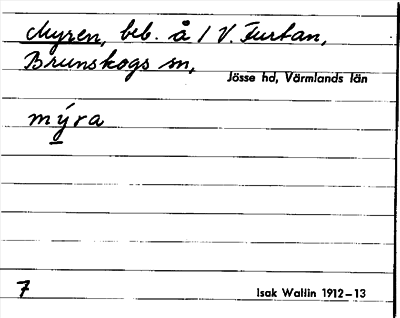 Myren, beb. å 1 V. Furtan,
Brunskogs sn,
Jösse hd, Värmlands län
mýra
7
Isak Wallin 1912–13